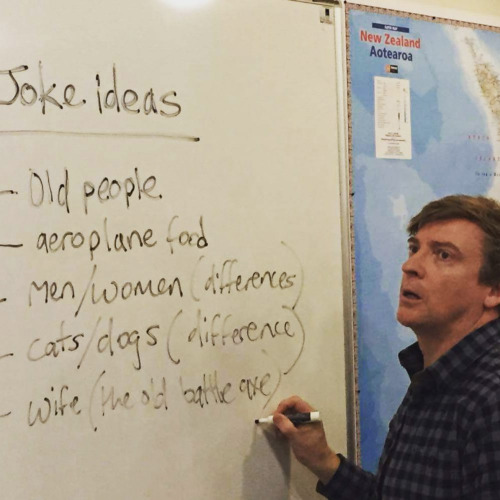 Joke ideas
- Old people.
- aeroplane food
- Men/women (differences)
- cats/dogs (difference)
- wife (the old battle axe)
New Zealand
Aotearoa